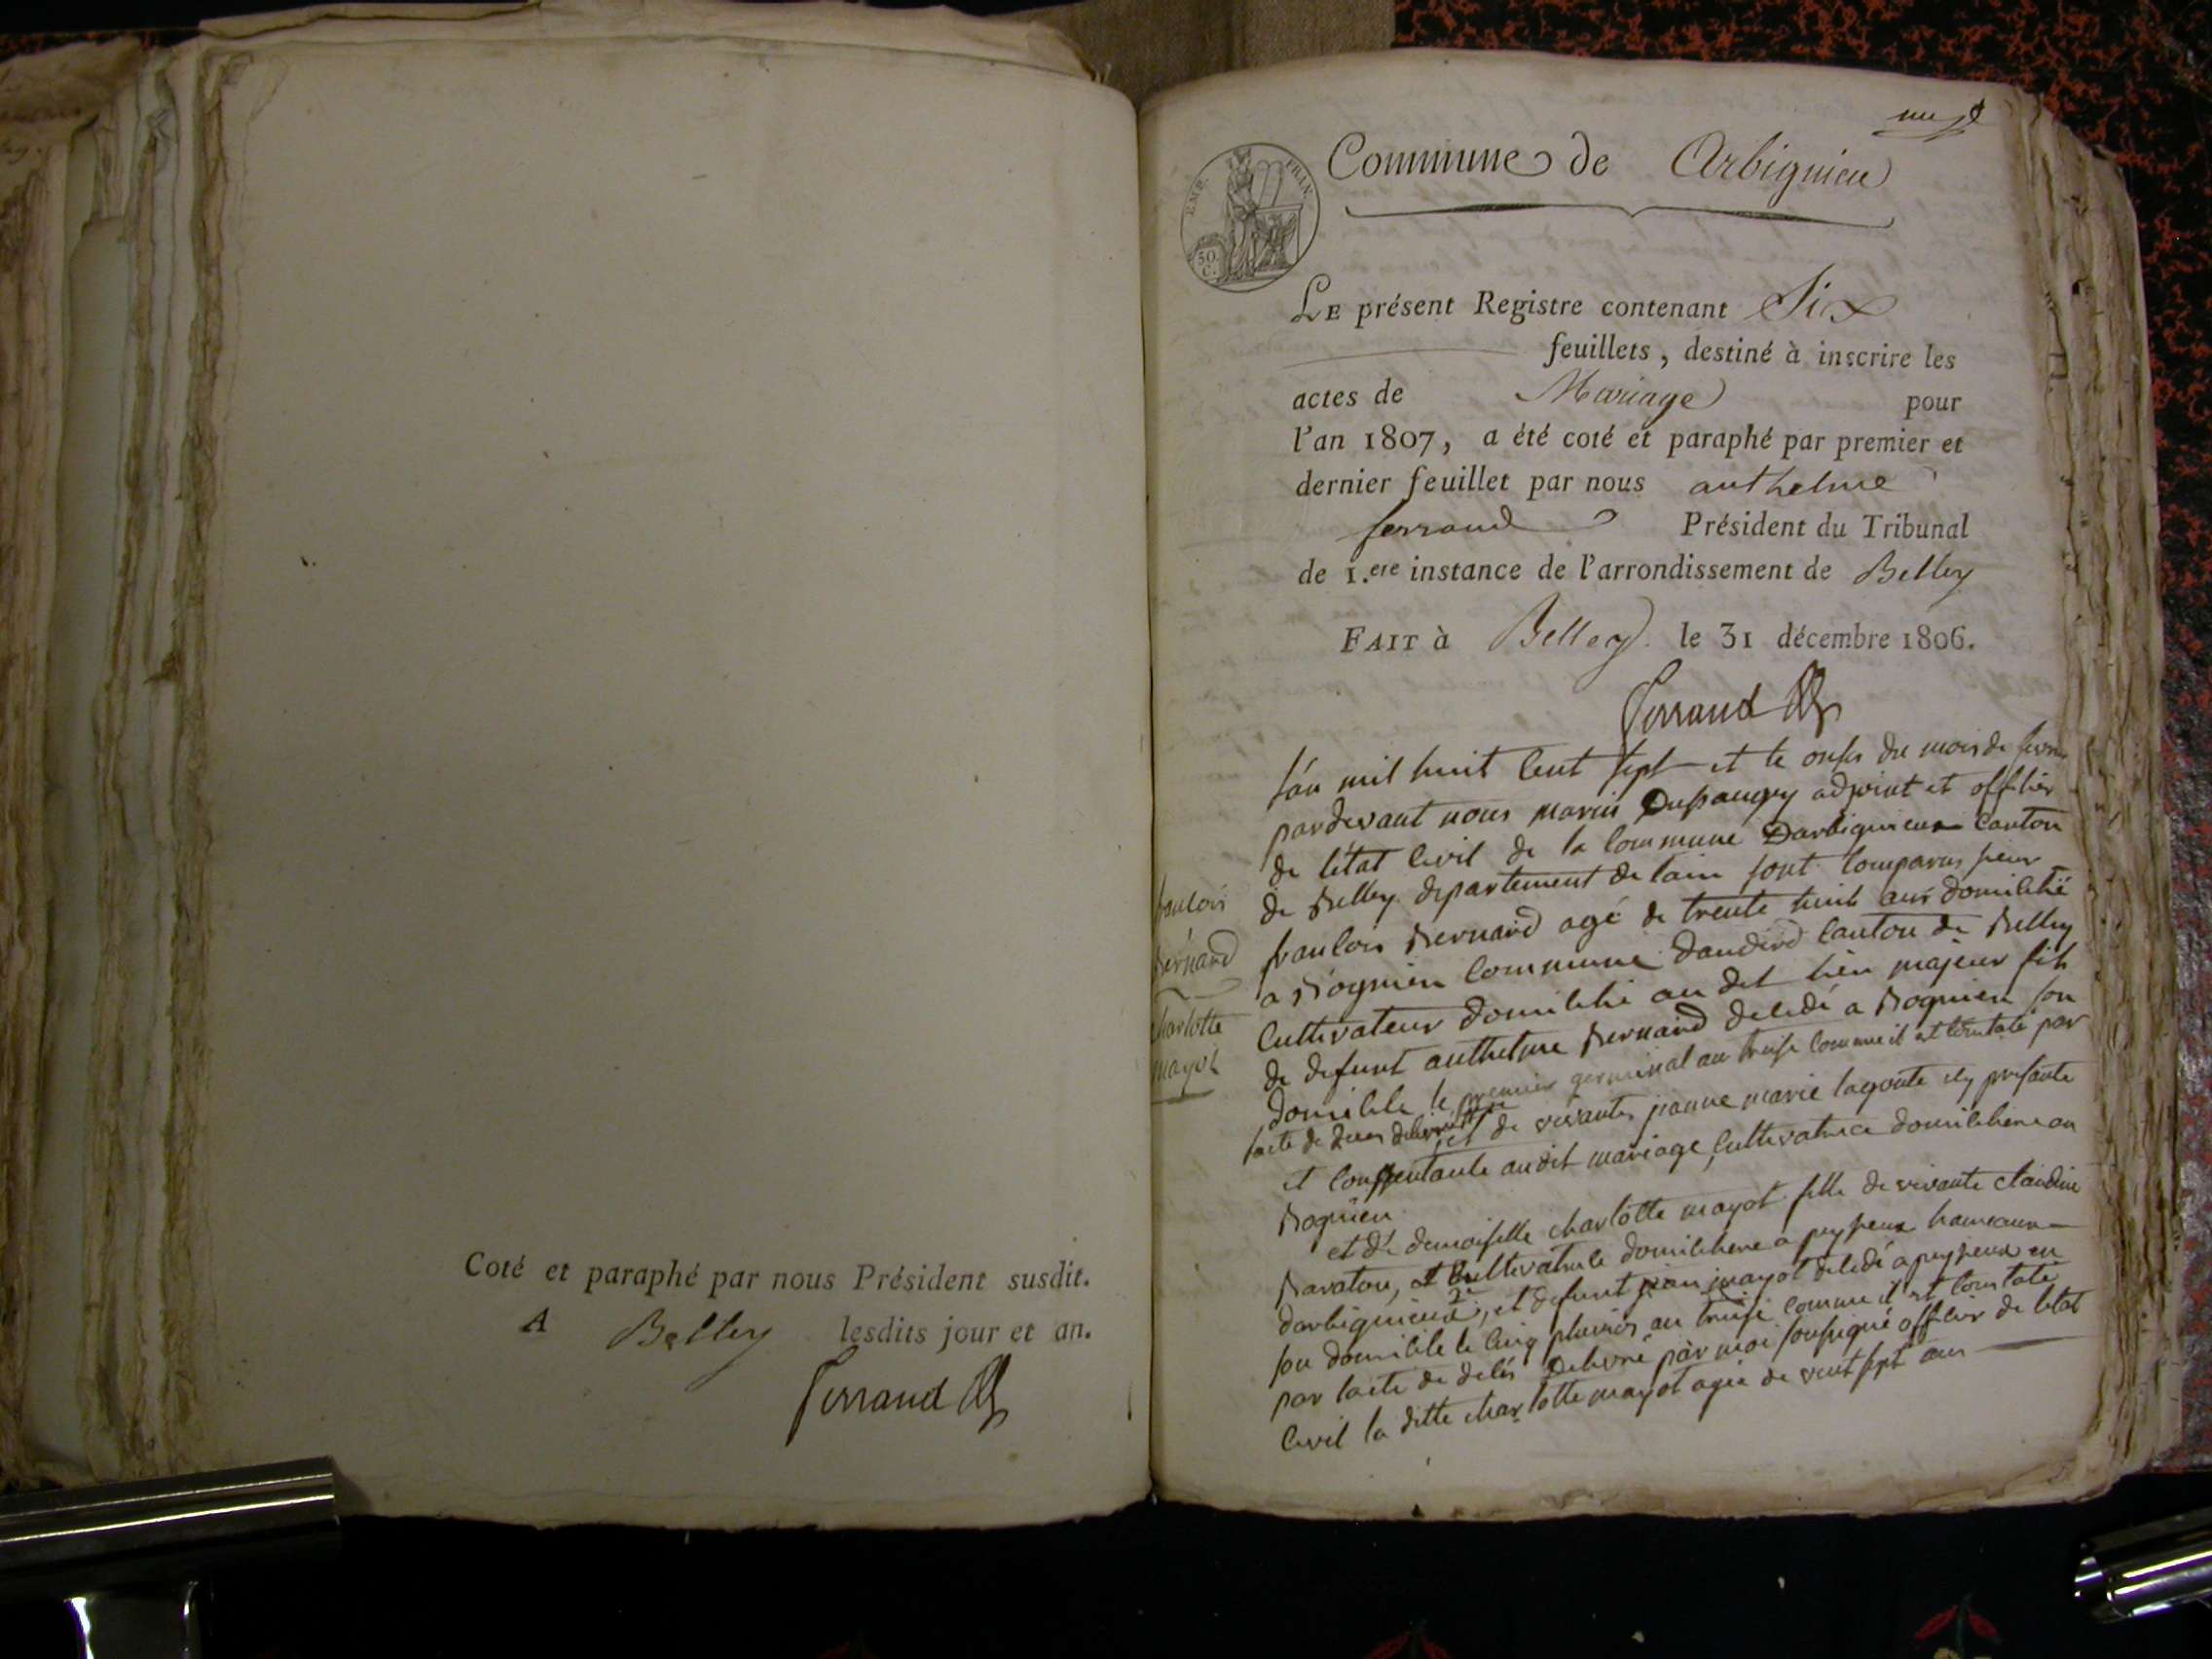 Coté et paraphé par nous Président susdit.
A Belley lesdits jour et an.
Ferrand
Commune de Arbignieu
EMP. FRAN.
50. C.
LE présent Registre contenant Six
feuillets, destiné à inscrire les
actes de Mariage pour
l'an 1807, a été coté et paraphé par premier et
dernier feuillet par nous anthelme
ferrand Président du Tribunal
de 1.ere instance de l'arrondissement de Belley
FAIT à Belley le 31 décembre 1806.
Ferrand
francois
Bernard
charlotte
mayot
l'an mil huit cent sept et le onse du mois de
pardevant nous marin adjoint et officier
de l'état civil de la commune Darbignieux canton
de Belley departement de lain sont comparus sieur
francois Bernard agé de trente huit ans domicilié
a Bognien commune dandert canton de Belley
cultivateur domicilié au dit lieu majeur fils
de defunt anthelme Bernard decedé a Bognien son
domicile le premier germinal an treise comme il est constaté par
lacte de deces delivré et de vivante jeanne marie lagoute icy presante
et consentante audit mariage, cultivatrice domiciliere au
Bognien
et de demoiselle charlotte mayot fille de vivante claudine
Baraton, et cultivatrice domiciliere a peyzeux hameaux
darbignieux, et defunt jean mayot decedé a peyzeux en
son domicile le cinq pluvios an treise comme il est constaté
par lacte de deces delivré par moi soussigné officier de letat
civil la ditte charlotte mayot agée de vent sept ans